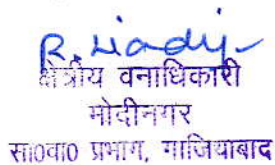 क्षेत्रीय वनाधिकारी
मोदीनगर
सा०वा० प्रभाग, गाजियाबाद